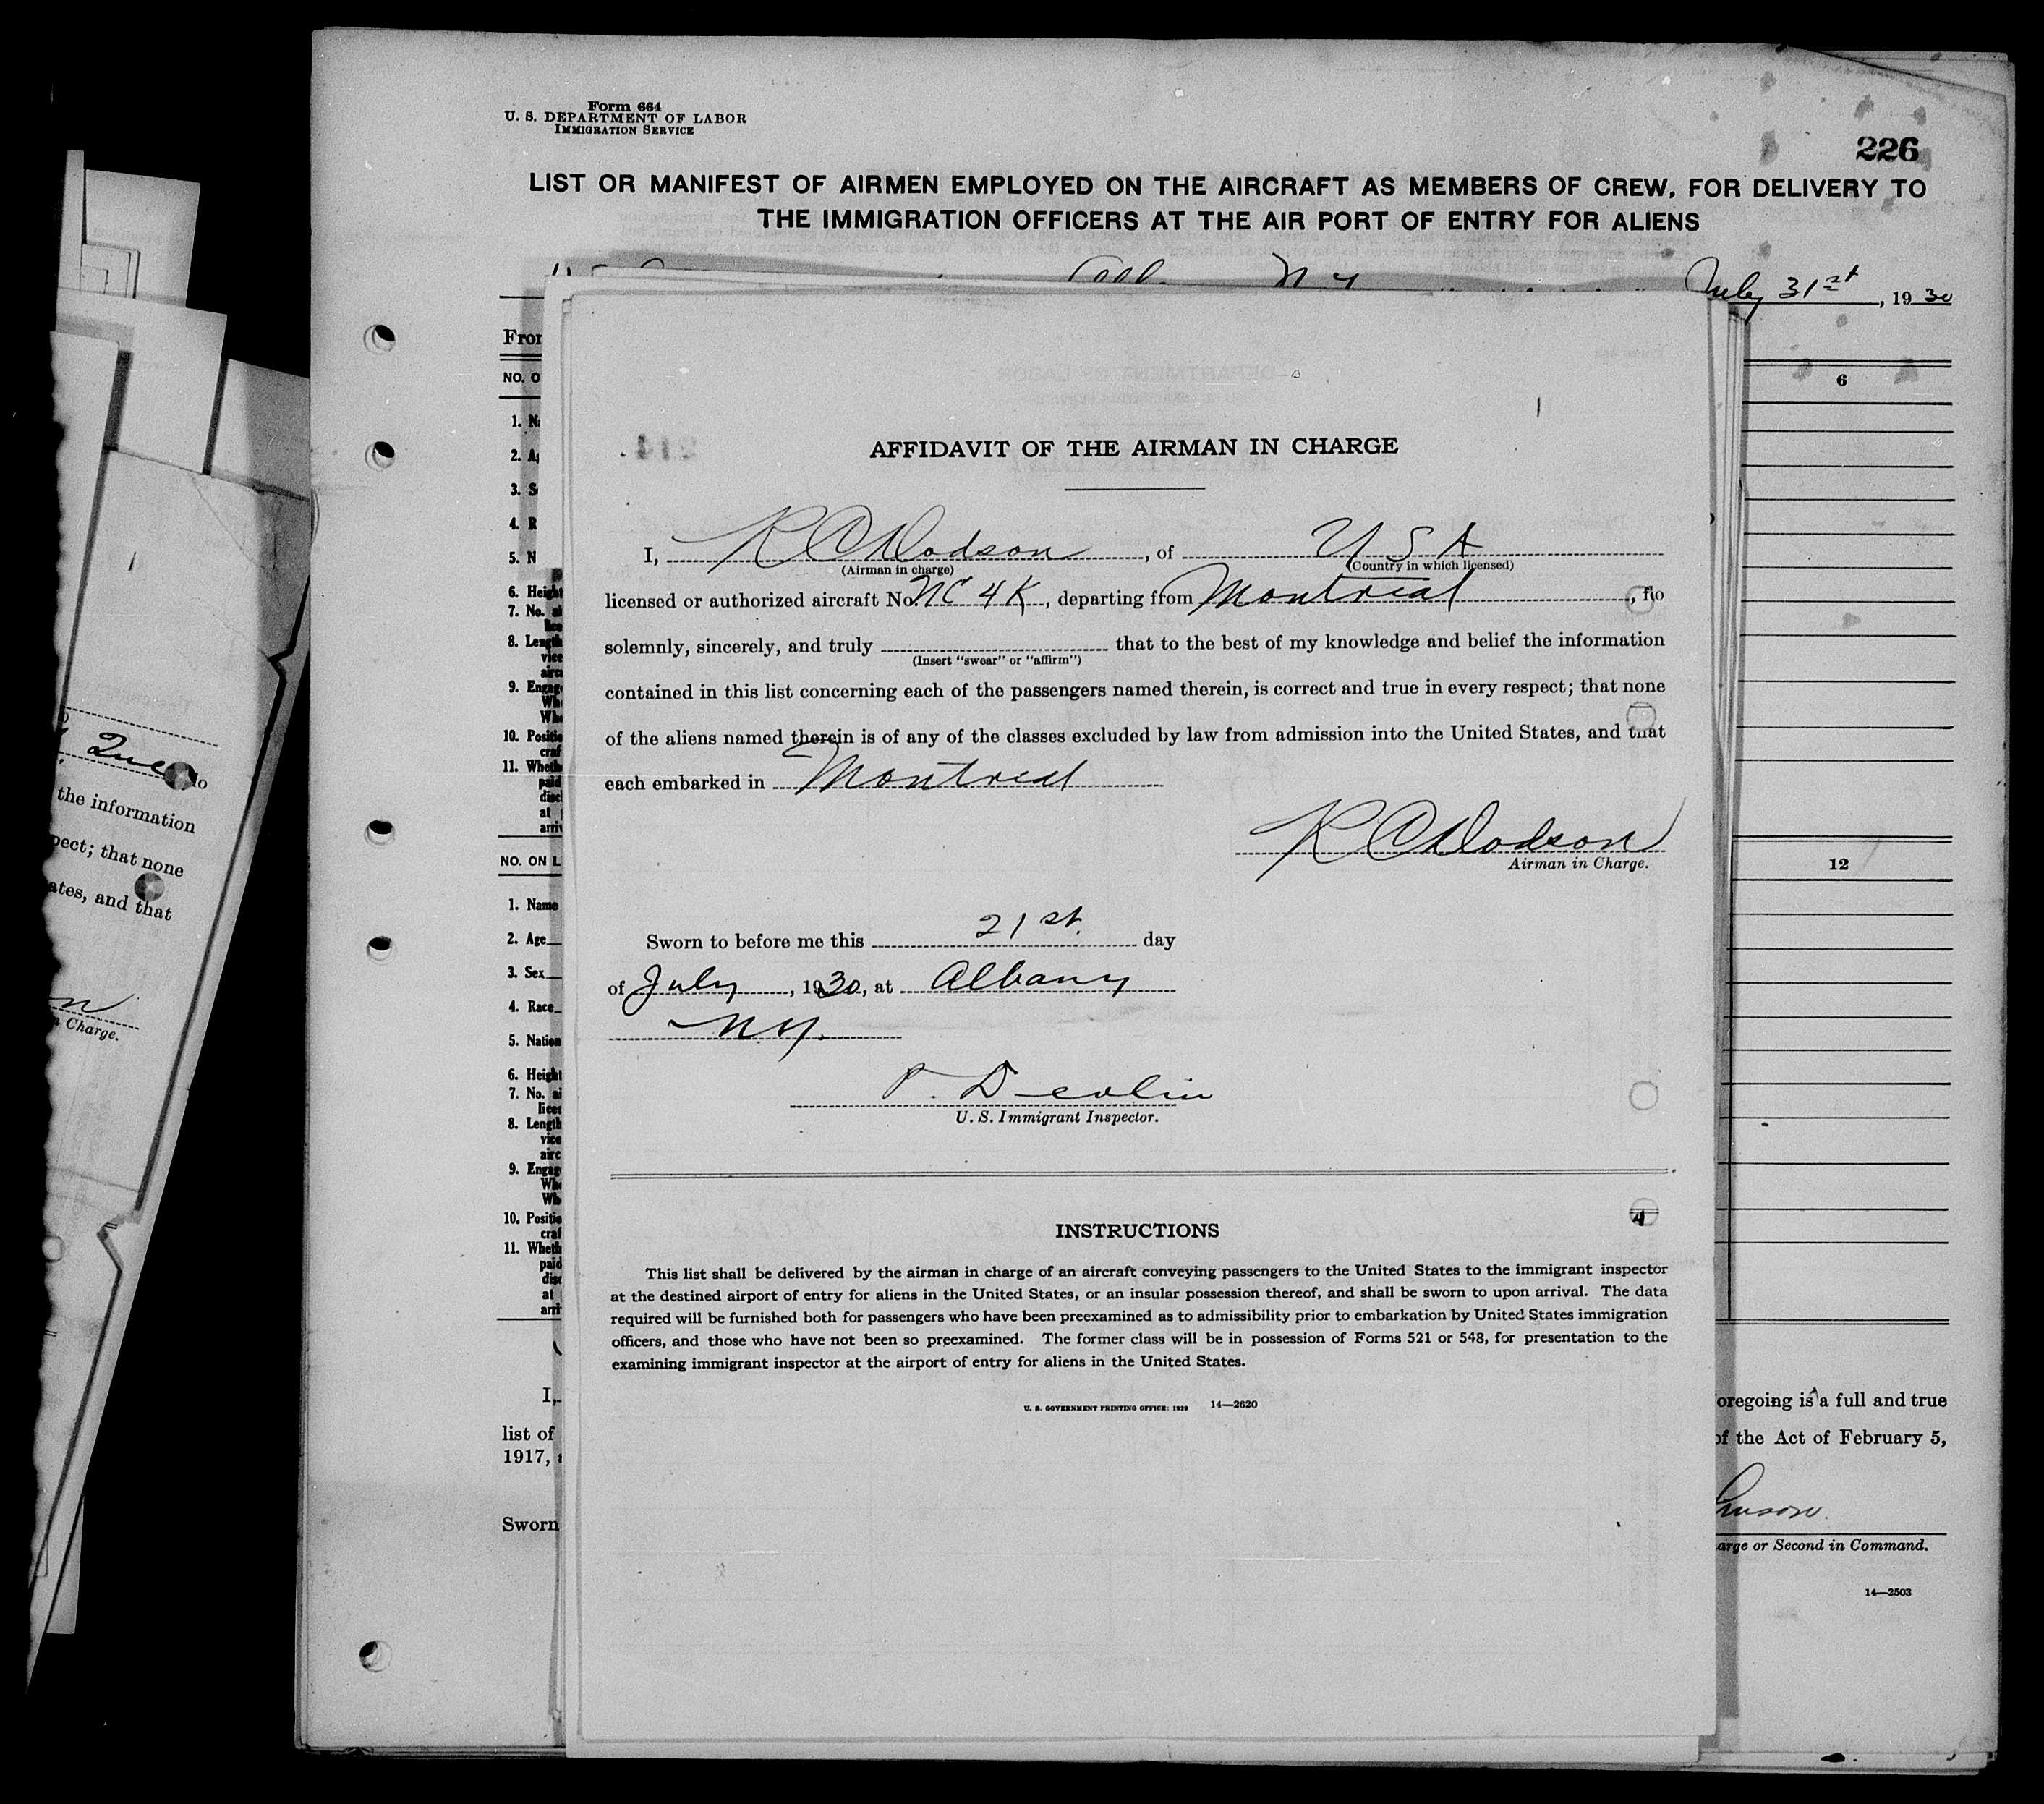 Form 664
U. S. DEPARTMENT OF LABOR
IMMIGRATION SERVICE
226
LIST OR MANIFEST OF AIRMEN EMPLOYED ON THE AIRCRAFT AS MEMBERS OF CREW, FOR DELIVERY TO
THE IMMIGRATION OFFICERS AT THE AIR PORT OF ENTRY FOR ALIENS
July 31st, 1930
6
AFFIDAVIT OF THE AIRMAN IN CHARGE
I, R C Dodson, of U S A
(Airman in charge) (Country in which licensed)
licensed or authorized aircraft No. NC 4K, departing from Montreal, do
solemnly, sincerely, and truly that to the best of my knowledge and belief the information
(Insert "swear" or "affirm")
contained in this list concerning each of the passengers named therein, is correct and true in every respect; that none
of the aliens named therein is of any of the classes excluded by law from admission into the United States, and that
each embarked in Montreal
R C Dodson
Airman in Charge.
Sworn to before me this 21st. day
of July, 1930, at Albany
N.Y.
P. Devlin
U. S. Immigrant Inspector.
INSTRUCTIONS
This list shall be delivered by the airman in charge of an aircraft conveying passengers to the United States to the immigrant inspector
at the destined airport of entry for aliens in the United States, or an insular possession thereof, and shall be sworn to upon arrival. The data
required will be furnished both for passengers who have been preexamined as to admissibility prior to embarkation by United States immigration
officers, and those who have not been so preexamined. The former class will be in possession of Forms 521 or 548, for presentation to the
examining immigrant inspector at the airport of entry for aliens in the United States.
U. S. GOVERNMENT PRINTING OFFICE: 1929 14—2620
NO. O
1. N
2. A
3. S
4. R
5. N
6. Height
7. No. ai
8. Length
vice
airc
9. Engag
Wh
Wh
10. Positio
craf
11. Wheth
paid
disc
at
arri
NO. ON L
1. Name
2. Age
3. Sex
4. Race
5. Nation
6. Height
7. No. ai
lice
8. Length
vice
airc
9. Engag
Wh
Wh
10. Positio
craf
11. Wheth
paid
disc
at
arri
I,
list of
1917,
Sworn
12
oregoing is a full and true
of the Act of February 5,
arge or Second in Command.
14—2503
Que, do
the information
pect; that none
ates, and that
Charge.